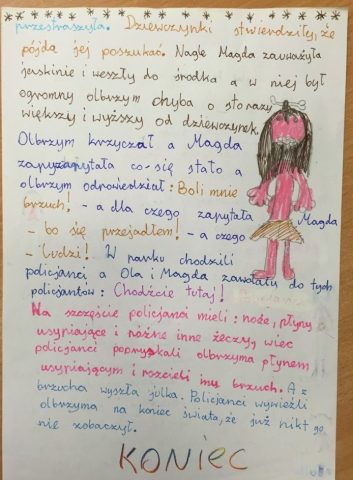 przestraszyła. Dziewczynki stwierdziły, że
pójdą jej poszukać. Nagle Magda zauważyła
jaskinie i weszły do środka a w niej był
ogromny olbrzym chyba o sto razy
większy i wyższy od dziewczynek.
Olbrzym krzyczał a Magda
zapytała co się stało a
olbrzym odpowiedział: Boli mnie
brzuch! - a dla czego zapytała Magda
- bo się przejadłem! - a czego
- Ludzi! W parku chodzili
policjanci a Ola i Magda zawołały do tych
policjantów: Chodźcie tutaj!
Na szczęście policjanci mieli: noże, płyny
usypiające i różne inne rzeczy, więc
policjanci popryskali olbrzyma płynem
usypiającym i rozcieli mu brzuch. A z
brzucha wyszła julka. Policjanci wywieźli
olbrzyma na koniec świata, że już nikt go
nie zobaczył.
KONIEC